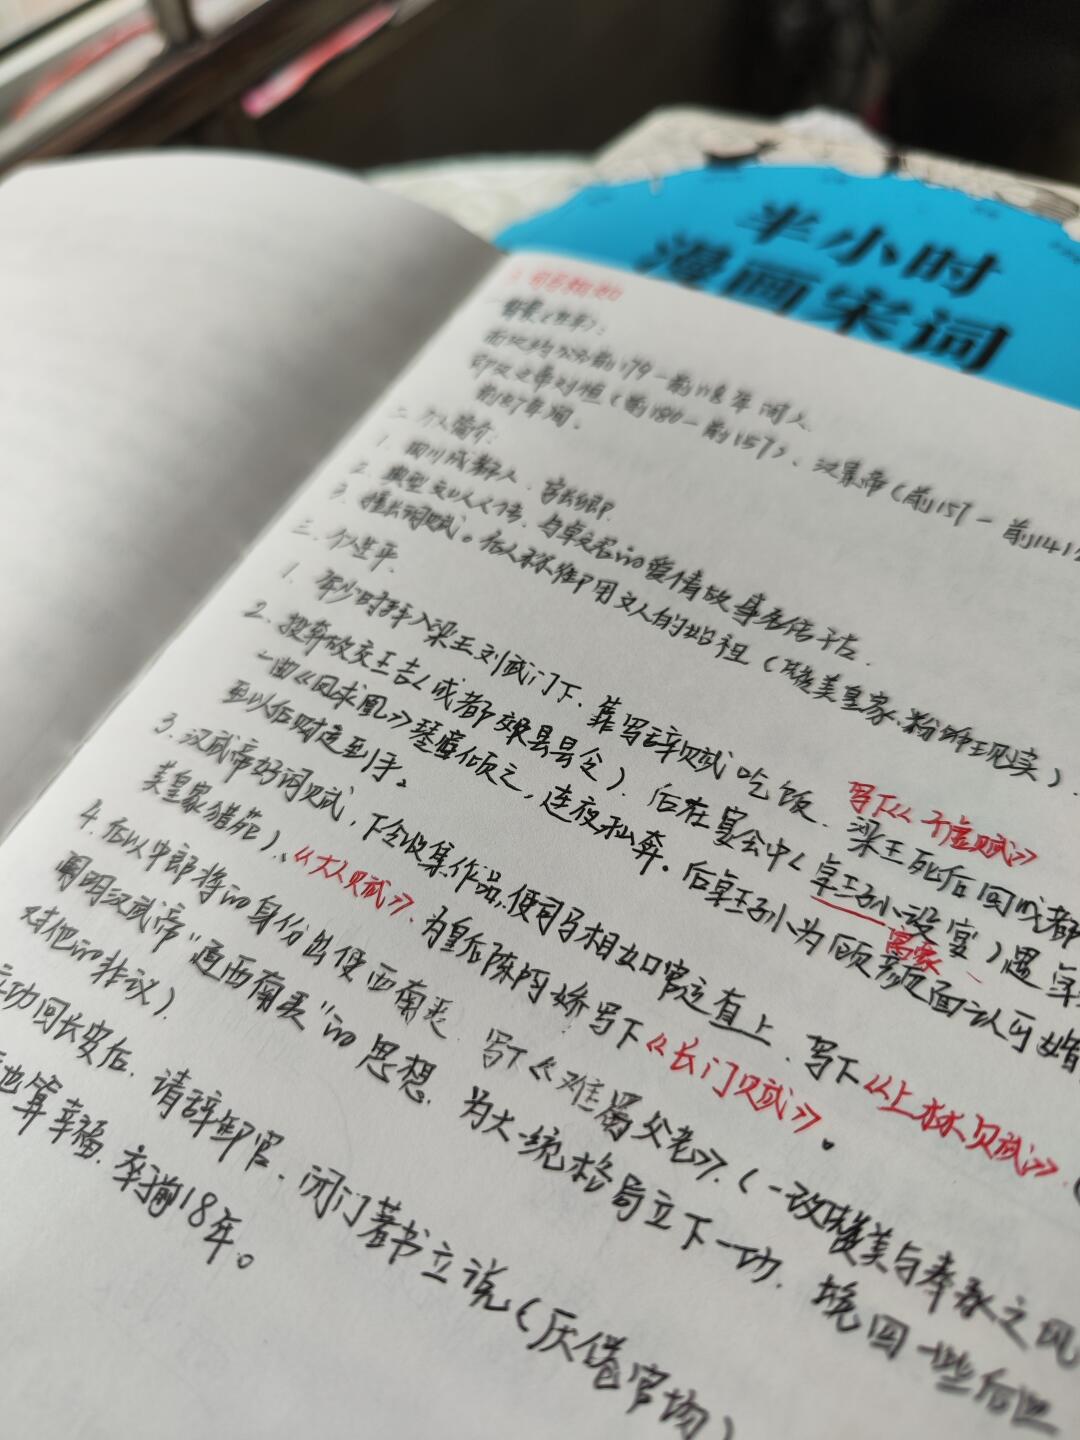 半小时
漫画宋词
司马相如
一. 背景(生平):
西汉约公元前179-前118年间人.
即汉文帝刘恒(前180-前157)、汉景帝(前157-前141
前87年间.
二. 个人简介.
1. 四川成都人. 字长卿.
2. 典型文人, 与卓文君的爱情故事流传千古.
3. 擅长词赋。后人称御用文人的始祖(赞美皇家.粉饰现实).
三. 个人生平.
1. 年少时拜入梁王刘武门下. 靠写辞赋吃饭. 写下《子虚赋》
梁王死后回成都
2. 投奔故交王吉(成都 县县令). 后在宴会中(卓王孙小设宴)遇卓
富豪
一曲《凤求凰》琴瘾倾之, 连夜私奔。后卓王孙小为顾颜面认可婚
至以后财产到手。
3. 汉武帝好词赋, 下令收集作品, 使司马相如官运直上. 写下《上林赋》. (
美皇家猎苑)、《大人赋》. 为皇后陈阿娇写下《长门赋》。
4. 后以中郎将的身份出使西南夷. 写下《难蜀父老》. (一改赞美与奉承之风
阐明汉武帝"通西南夷"的思想. 为大一统格局立下一功. 挽回一些后世
对他的非议).
功回长安后. 请辞卸官. 闭门著书立说(厌倦官场)
也算幸福. 卒前118年。